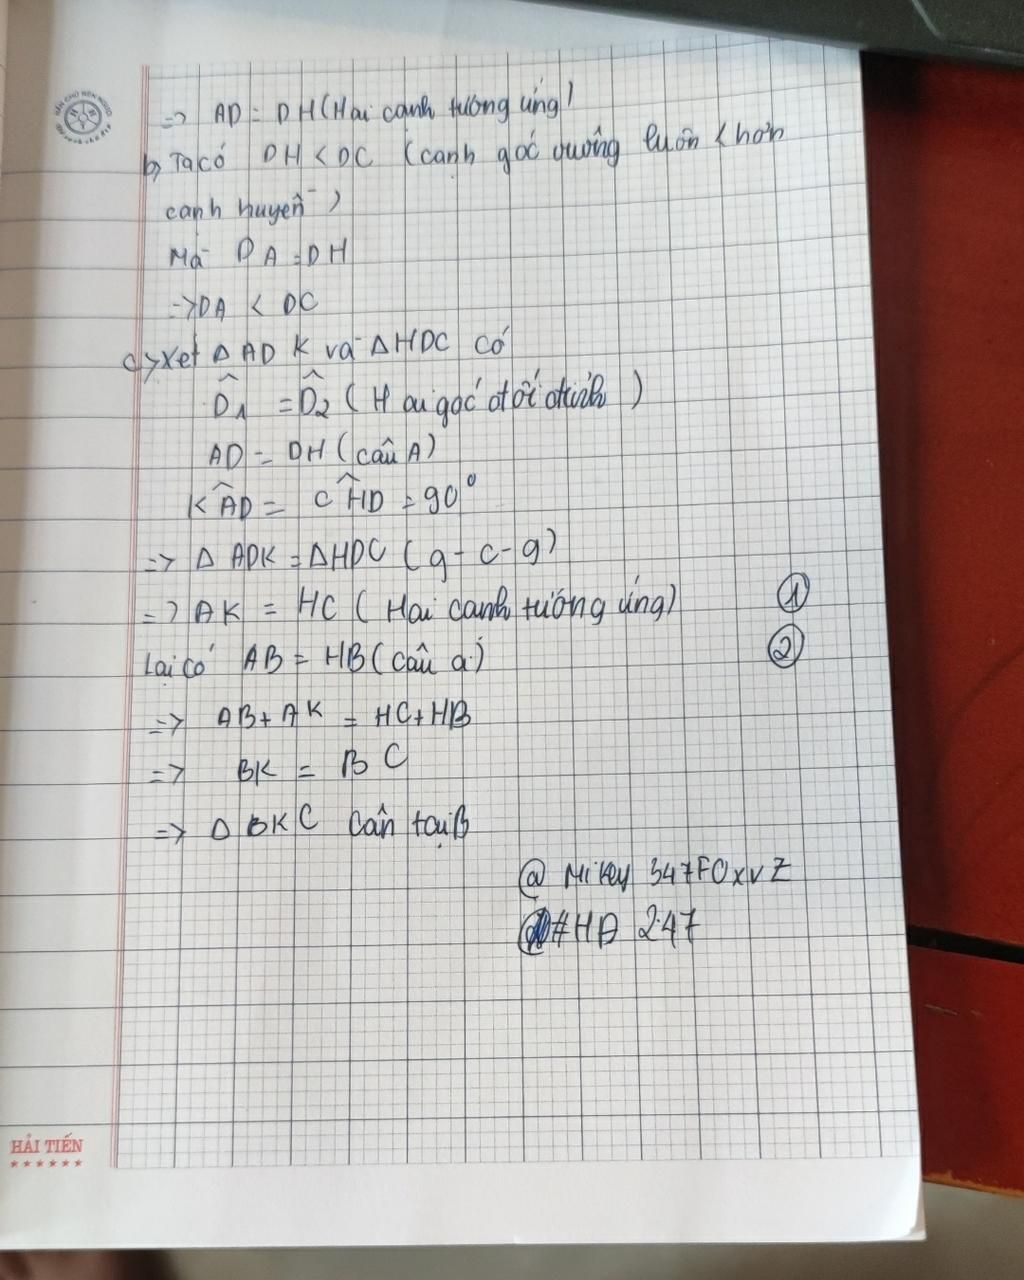 => AD = DH (Hai cạnh tương ứng)
b, Ta có DH < DC (cạnh góc vuông luôn < hơn
cạnh huyền)
Mà DA = DH
=> DA < DC
c, Xét Δ ADK và ΔHDC có
D̂1 = D̂2 (Hai góc đối đỉnh)
AD = DH (câu A)
KÂD = CĤD = 90°
=> Δ ADK = ΔHDC (g-c-g)
=> AK = HC (Hai cạnh tướng ứng) ①
Lại có AB = HB (câu a) ②
=> AB + AK = HC + HB
=> BK = BC
=> Δ BKC cân tại B
@ Mikey 347FOxvZ
#HD 247
HẢI TIẾN